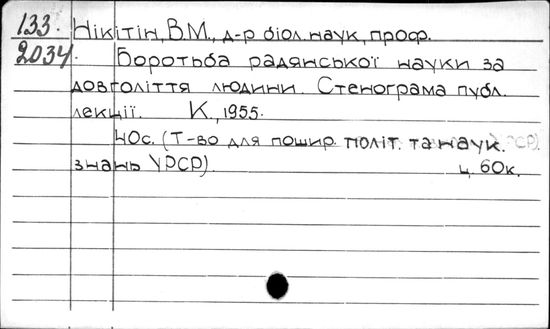 133. Нікітін, В.М., д-р біол. наук, проф.
2034. Боротьба радянської науки за
довголіття людини. Стенограма публ.
лекції. К., 1955.
40с. (Т-во для пошир. політ. та наук.
знань УРСР). ц. 60к.